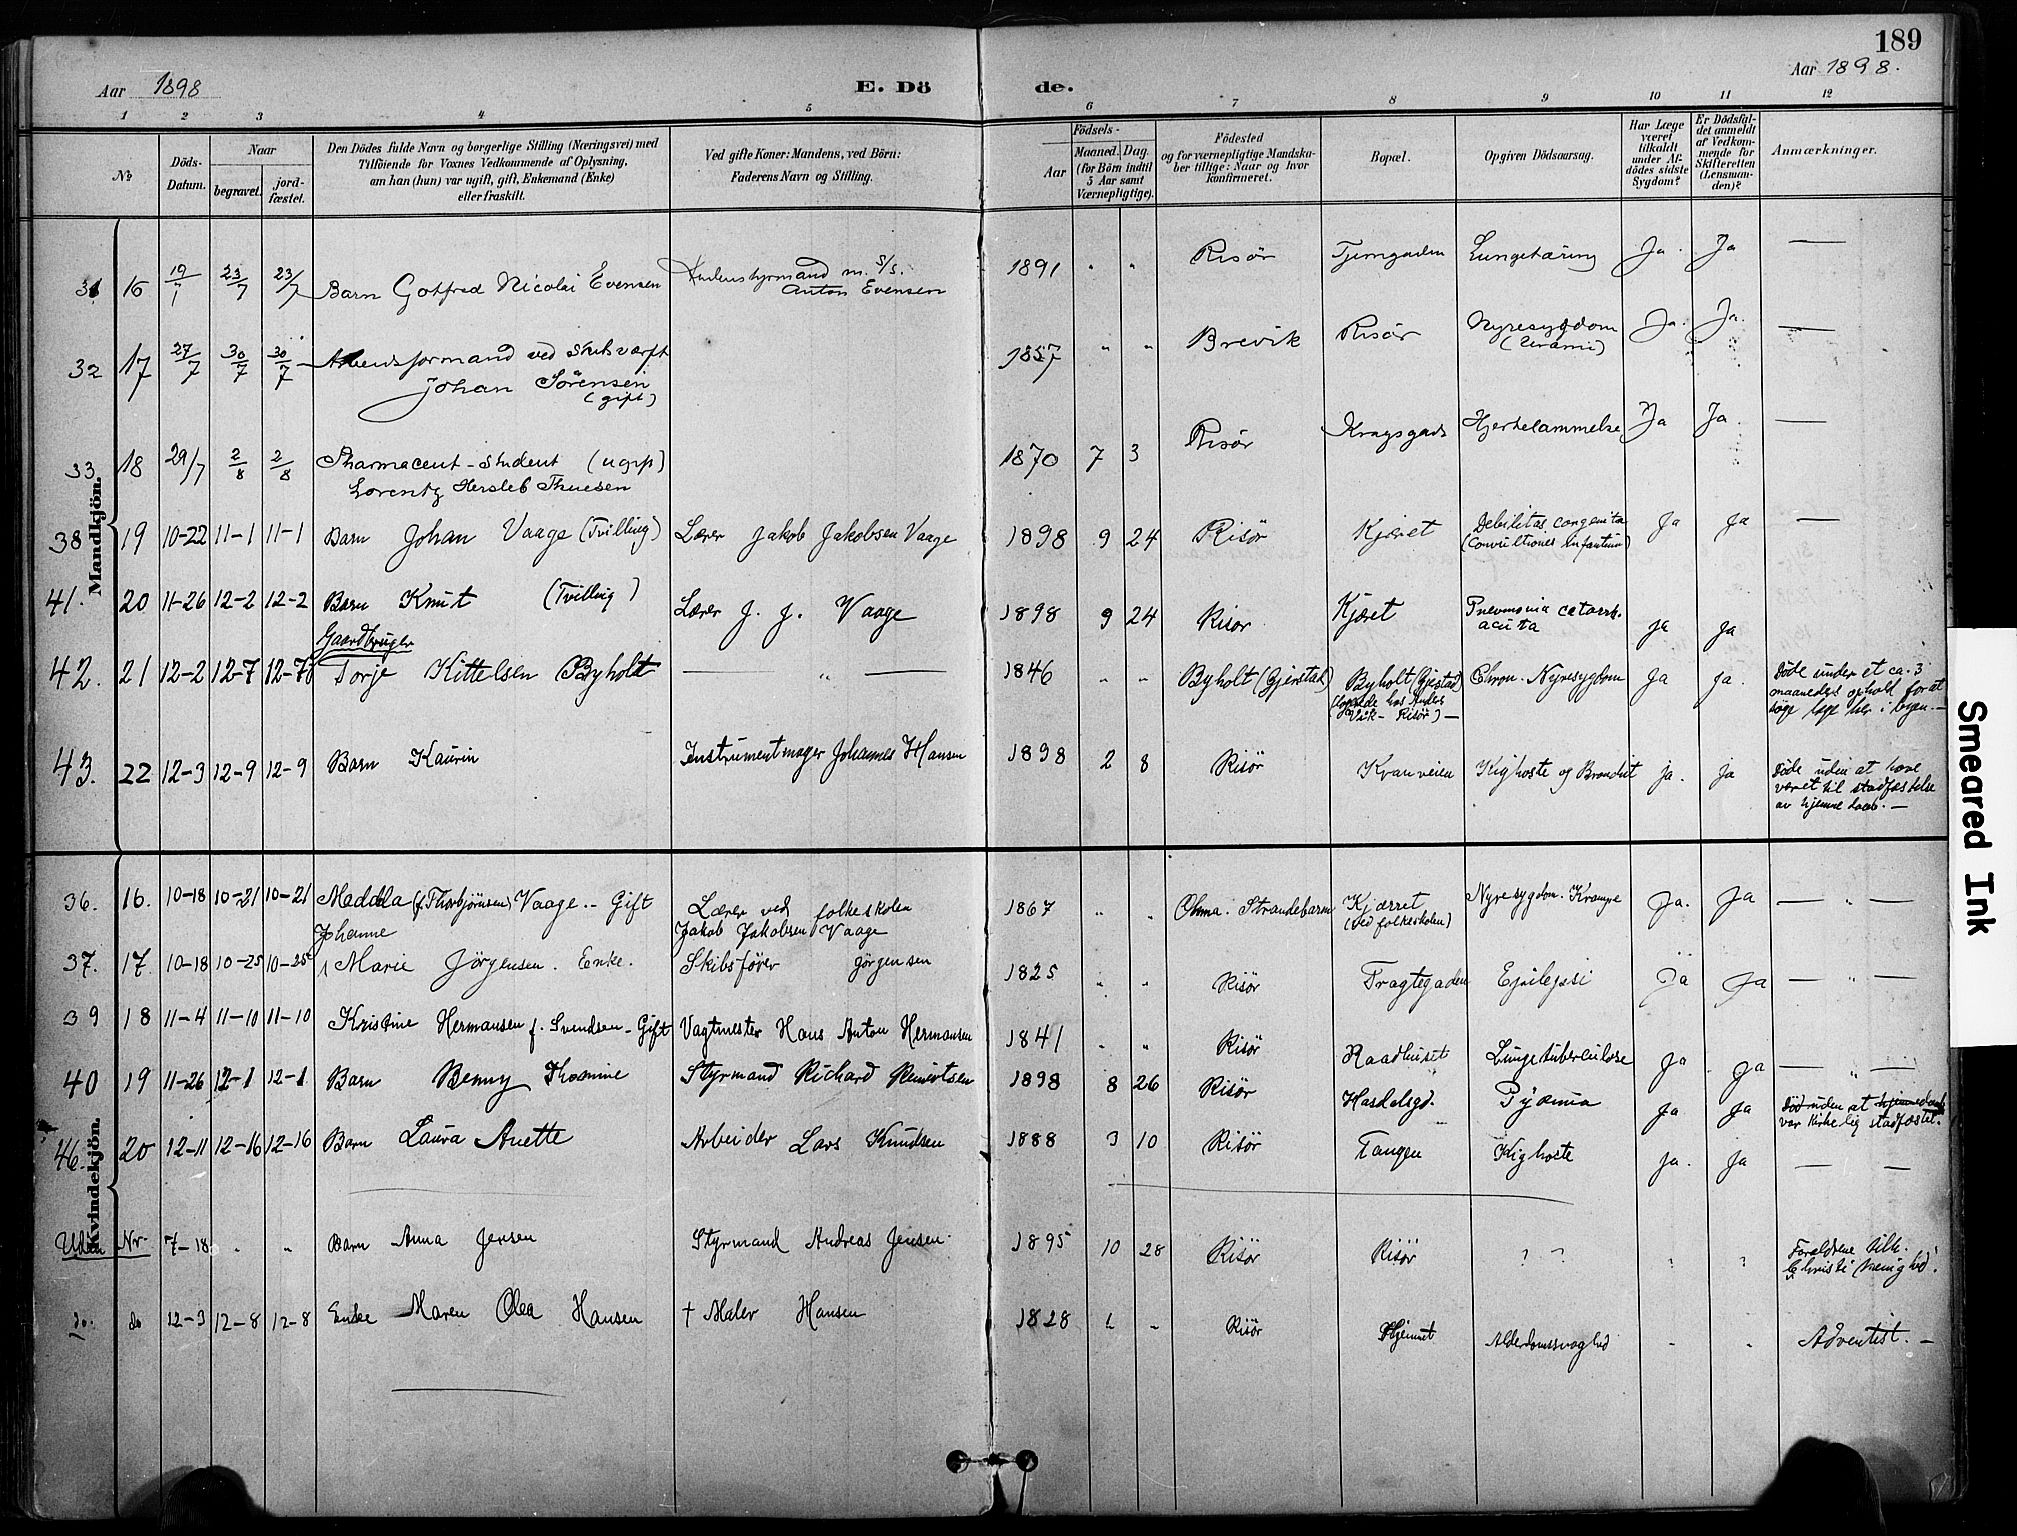 189
Aar 1898
E. Dö de.
Aar 1898.
1 2 3 4 5 6 7 8 9 10 11 12
No
Döds-Datum.
Naar
begravet.
jord-fæstet.
Den Dödes fulde Navn og borgerlige Stilling (Næringsvei) med
Tilföiende for Voxnes Vedkommende af Oplysning,
om han (hun) var ugift, gift, Enkemand (Enke)
eller fraskilt.
Ved gifte Koner: Mandens, ved Börn:
Faderens Navn og Stilling.
Födsels-
Aar
Maaned. Dag.
(for Börn indtil
5 Aar samt
Værnepligtige).
Födested
og for værnepligtige Mandska-
ber tillige: Naar og hvor
konfirmeret.
Bopæl.
Opgiven Dödsaarsag.
Har Læge
været
tilkaldt
under Af-
dödes sidste
Sygdom?
Er Dödsfal-
det anmeldt
af Vedkom-
mende for
Skifteretten
(Lensman-
den)?
Anmærkninger.
Mandkjön.
31 16 19/7 23/7 23/7 Barn Gotfred Nicolai Evensen
Andenstyrmand m. S/S.
Anton Evensen
1891 " " Risør Tjerngaden Lungetæring Ja. Ja —
32 17 27/7 30/7 30/7 Arbeidsformand ved Skibsværft
Johan Sörensen
(gift)
1857 " " Brevik Risør Nyresygdom
(Urämi)
Ja. Ja. —
33 18 29/7 2/8 2/8 Pharmaceut-Student (ugift)
Lorentz Hersleb Thuesen
1870 7 3 Risør Kragsgade Hjertelammelse Ja Ja. —
38 19 10-22 11-1 11-1 Barn Johan Vaage (Tvilling) Lærer Jakob Jakobsen Vaage 1898 9 24 Risør Kjæret Debilitas congenita
(Convultiones infantium)
Ja Ja —
41. 20 11-26 12-2 12-2 Barn Knut (Tvilling) Lærer J. J. Vaage 1898 9 24 Risør Kjæret Pneumonia catarrh.
acuta
ja ja
Gaardbruger
42. 21 12-2 12-7 12-7 Torje Kittelsen Byholt — " — 1846 " " Byholt (Gjerstad) Byholt (Gjerstad)
(logerede hos Anders
Vik - Risør) —
Chron. Nyresygdom Ja ja.
Døde under et ca. 3
maaneders ophold for at
søge læge her i byen. —
43. 22 12-3 12-9 12-9 Barn Kaurin Instrumentmager Johannes Hansen 1898 2 8 Risør Kranveien Kighoste og Bronchit ja. ja
Døde uden at have
været til stadfæstelse
av hjemmedaab. —
Kvindekjön.
36. 16. 10-18 10-21 10-21 Maddela (f. Thorbjörnsen) Vaage - Gift Lærer ved folkeskolen
Jakob Jakobsen Vaage
1867 " " Ohma. Strandebarm Kjærret
(ved folkeskolen)
Nyresygdom. Krampe Ja. Ja — " —
Johanne
37. 17. 10-18 10-25 10-25 Marie Jörgensen. Enke. Skibsfører Jörgensen 1825 " " Risör Tragtegaden Epilepsi Ja Ja — " —
39 18 11-4 11-10 11-10 Kristine Hermansen f. Svendsen - Gift Vagtmester Hans Anton Hermansen 1841 " " Risör Raadhuset Lungetuberculose Ja Ja — " —
40 19 11-26 12-1 12-1 Barn Benny Thomine Styrmand Richard 1898 8 26 Risör Hasdalsgd. Pyæmia Ja Ja
Död uden at hjemmedaab
var kirkelig stadfæstat.
46. 20 12-11 12-16 12-16 Barn Laura Anette Arbeider Lars Knudsen 1888 3 10 Risör Tangen Kighoste ja. ja — —
Uden Nr. 7-18 " " Barn Anna Jensen Styrmand Andreas Jensen. 1895 10 28 Risör Risör ? ? " "
Forældrene tilh.
Christi menighd.
do. do 12-3 12-8 12-8 Enke Maren Olea Hansen † Maler Hansen 1828 " " Risör Hjemmet Alderdomssvaghed - "
Adventist. —
Smeared Ink